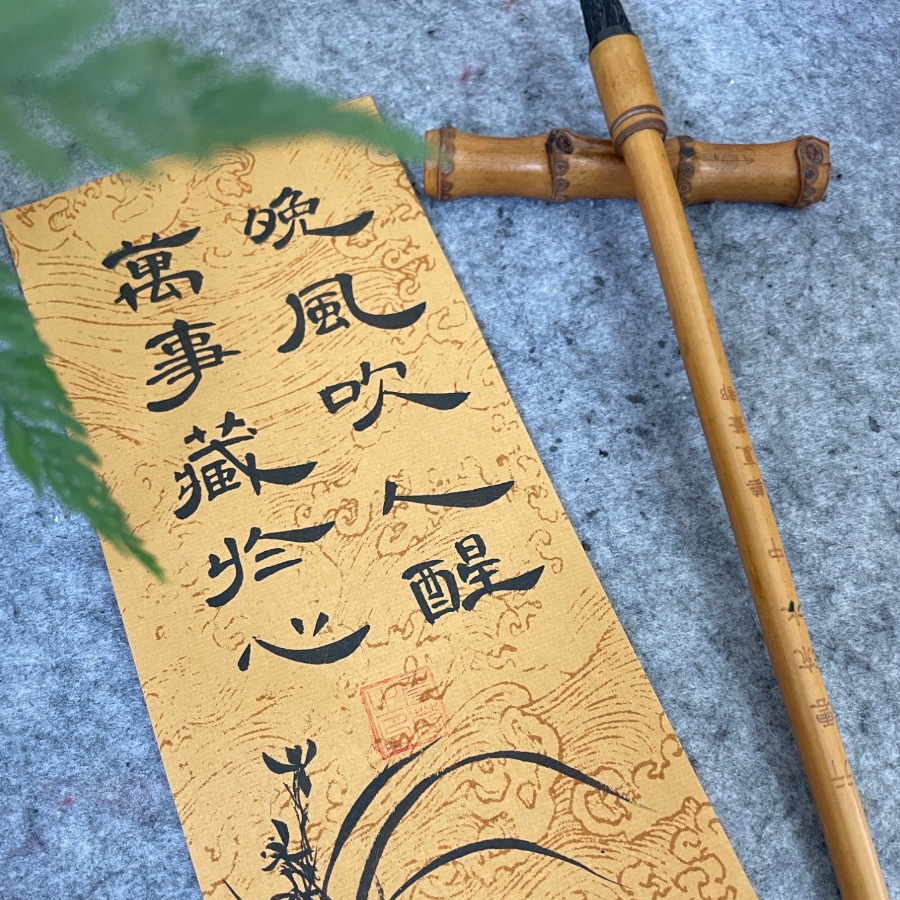 晚風吹人醒
萬事藏於心